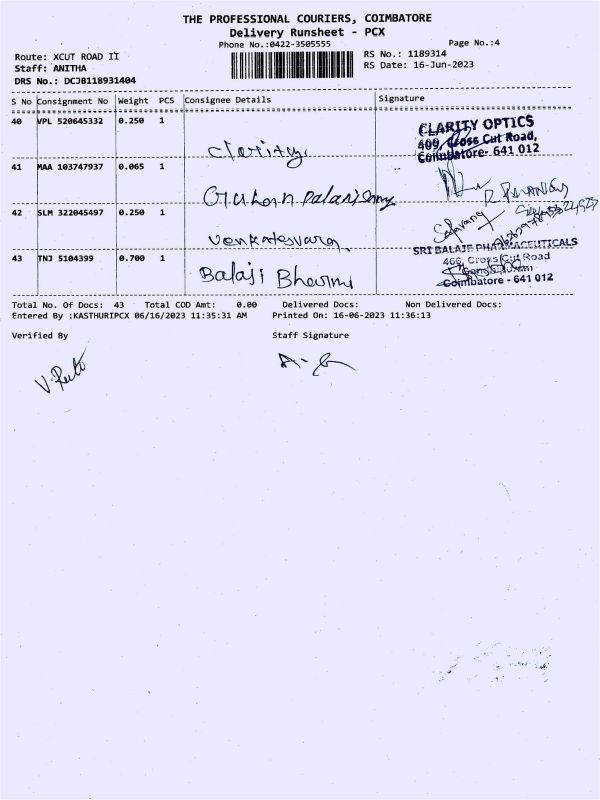 THE PROFESSIONAL COURIERS, COIMBATORE
Delivery Runsheet - PCX
Phone No.:0422-3505555
Page No.:4
Route: XCUT ROAD II
RS No.: 1189314
Staff: ANITHA
RS Date: 16-Jun-2023
DRS No.: DCJ0118931404
S No Consignment No Weight PCS Consignee Details Signature
40 VPL 520645332 0.250 1 clarity
CLARITY OPTICS
409, Cross Cut Road,
Coimbatore- 641 012
41 MAA 103747937 0.065 1
42 SLM 322045497 0.250 1 venkatesvara
43 TNJ 5104399 0.700 1 Balaji
SRI BALAJE PHARMACEUTICALS
466, Cross Cut Road
Coimbatore - 641 012
Total No. Of Docs: 43 Total COD Amt: 0.00 Delivered Docs: Non Delivered Docs:
Entered By :KASTHURIPCX 06/16/2023 11:35:31 AM Printed On: 16-06-2023 11:36:13
Verified By Staff Signature